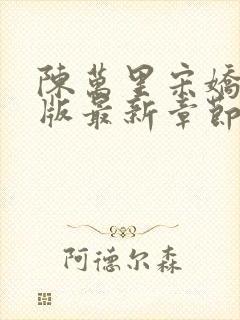 陳萬里宋嬌
版最新章節
阿德尔森